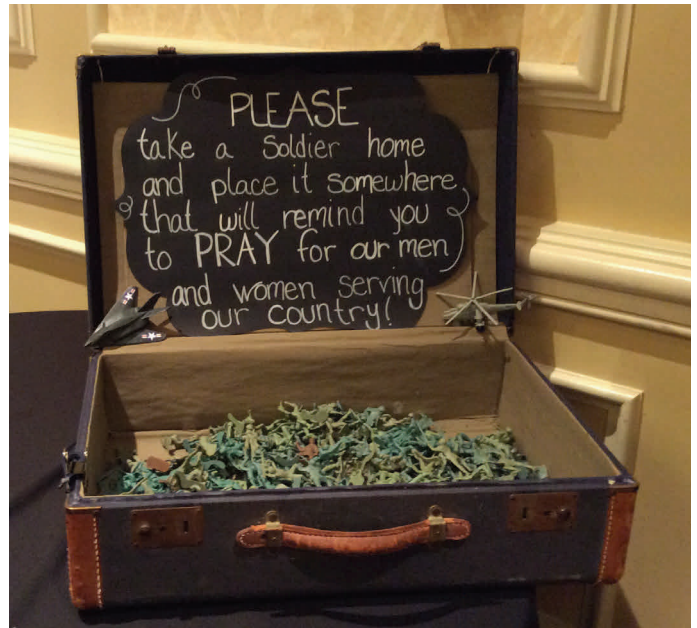 PLEASE
take a Soldier home
and place it somewhere
that will remind you
to PRAY for our men
and women serving
our country!